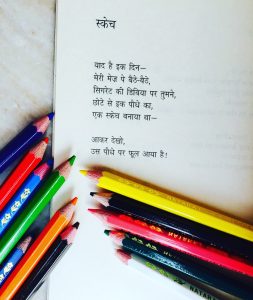 स्केच
याद है इक दिन—
मेरी मेज़ पे बैठे-बैठे,
सिगरेट की डिबिया पर तुमने,
छोटे से इक पौधे का,
एक स्केच बनाया था—
आकर देखो,
उस पौधे पर फूल आया है!
NATARAJ